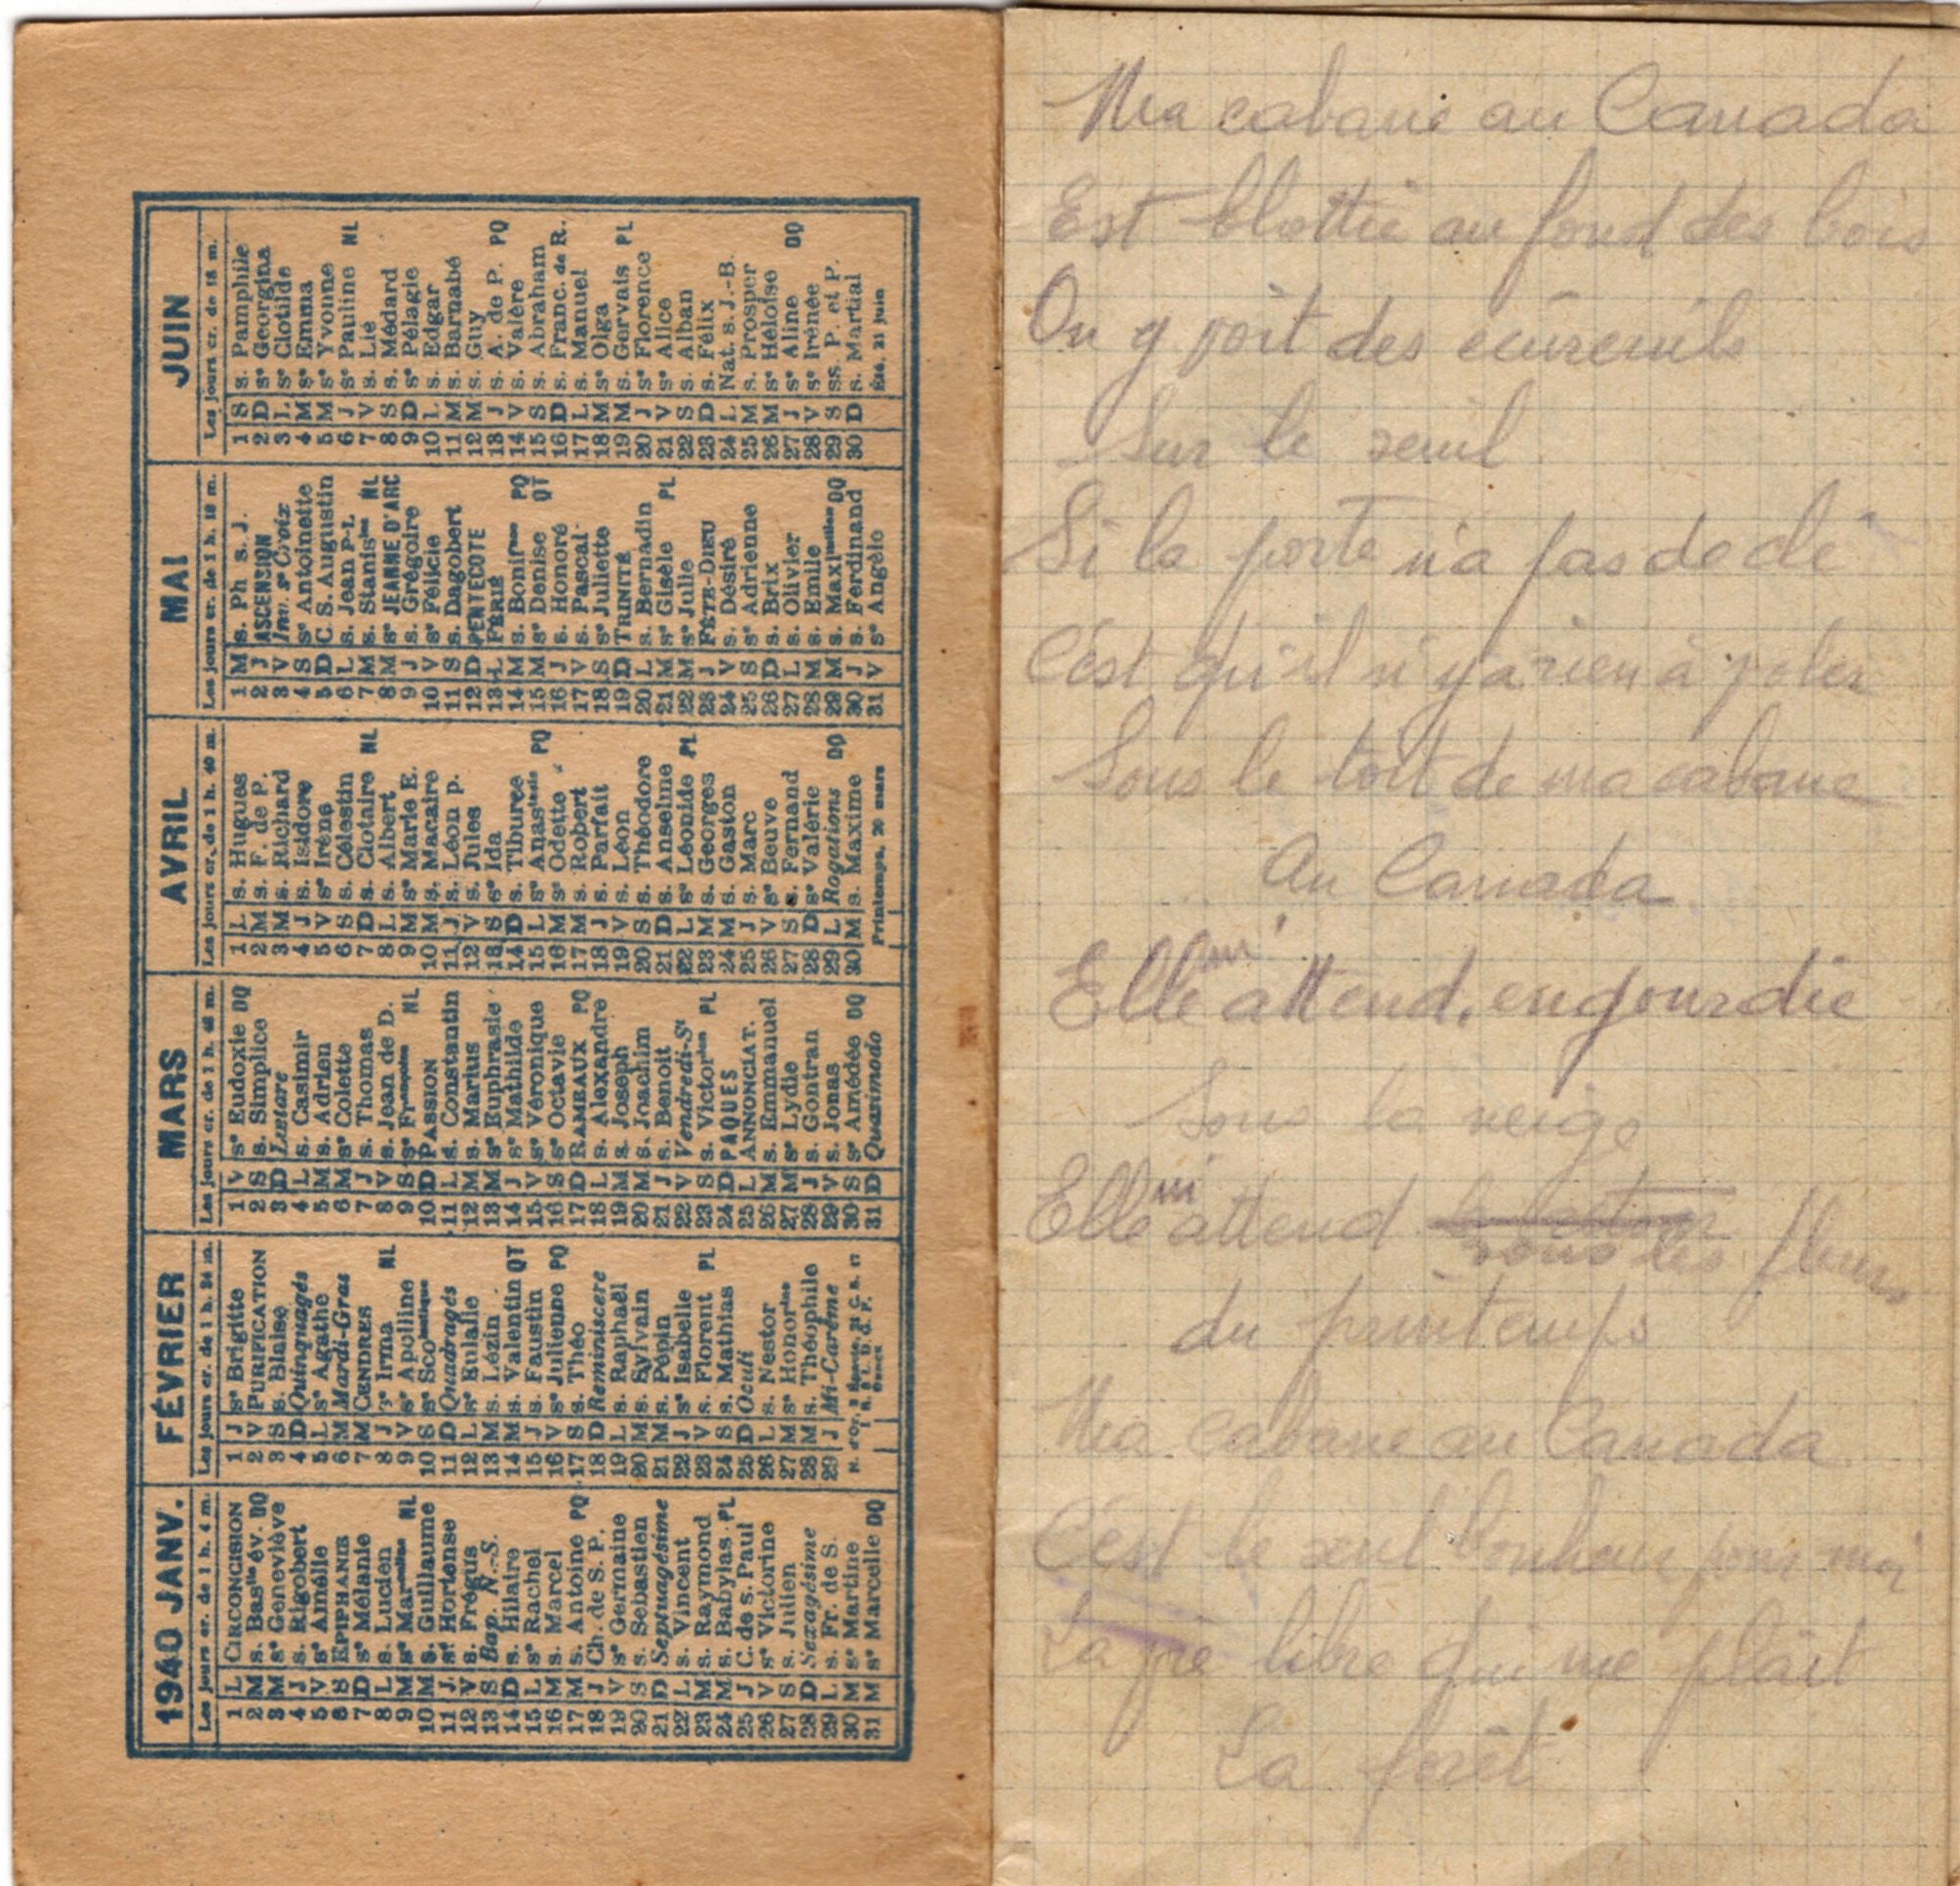 1940 JANV.
Les jours cr. de 1 h. 4 m.
1 L CIRCONCISION
2 M s. Basile év. DQ
3 M sᵉ Geneviève
4 J s. Rigobert
5 V sᵉ Amélie
6 S EPIPHANIE
7 D sᵉ Mélanie
8 L s. Lucien
9 M sᵉ Marcelline NL
10 M s. Guillaume
11 J sᵉ Hortense
12 V s. Frégus
13 S Bap. N.-S.
14 D s. Hilaire
15 L sᵉ Rachel
16 M s. Marcel
17 M s. Antoine PQ
18 J Ch. de S. P.
19 V sᵉ Germaine
20 S s. Sebastien
21 D Septuagésime
22 L s. Vincent
23 M s. Raymond
24 M s. Babylas PL
25 J C. de s. Paul
26 V sᵉ Victorine
27 S s. Julien
28 D Sexagésime
29 L s. Fr. de S.
30 M sᵉ Martine
31 M sᵉ Marcelle DQ
FÉVRIER
Les jours cr. de 1 h. 34 m.
1 J sᵉ Brigitte
2 V PURIFICATION
3 S s. Blaise
4 D Quinquagés
5 L sᵉ Agathe
6 M Mardi-Gras
7 M CENDRES
8 J sᵉ Irma NL
9 V sᵉ Apolline
10 S sᵉ Scolastique
11 D Quadragés
12 L sᵉ Eulalie
13 M s. Lézin
14 M s. Valentin QT
15 J s. Faustin
16 V sᵉ Julienne PQ
17 S s. Théo
18 D Reminiscere
19 L s. Raphaël
20 M s. Sylvain
21 M s. Pépin
22 J sᵉ Isabelle
23 V s. Florent PL
24 S s. Mathias
25 D Oculi
26 L s. Nestor
27 M sᵉ Honorine
28 M s. Théophile
29 J Mi-Carême
MARS
Les jours cr. de 1 h. 48 m.
1 V sᵉ Eudoxie DQ
2 S s. Simplice
3 D Lætare
4 L s. Casimir
5 M s. Adrien
6 M sᵉ Colette
7 J s. Thomas
8 V s. Jean de D.
9 S sᵉ Françoise NL
10 D PASSION
11 L s. Constantin
12 M s. Marius
13 M sᵉ Euphrasie
14 J sᵉ Mathilde
15 V sᵉ Véronique
16 S sᵉ Octavie
17 D RAMEAUX PQ
18 L s. Alexandre
19 M s. Joseph
20 M s. Joachim
21 J s. Benoit
22 V Vendredi-Sᵗ
23 S s. Victorien PL
24 D PAQUES
25 L ANNONCIAT.
26 M s. Emmanuel
27 M sᵉ Lydie
28 J s. Gontran
29 V s. Jonas
30 S sᵉ Amédée DQ
31 D Quasimodo
AVRIL
Les jours cr. de 1 h. 40 m.
1 L s. Hugues
2 M s. F. de P.
3 M s. Richard
4 J s. Isidore
5 V sᵉ Irène
6 S s. Célestin
7 D s. Clotaire NL
8 L s. Albert
9 M sᵉ Marie E.
10 M s. Macaire
11 J s. Léon p.
12 V s. Jules
13 S sᵉ Ida
14 D s. Tiburce
15 L sᵉ Anastasie PQ
16 M sᵉ Odette
17 M s. Robert
18 J s. Parfait
19 V s. Léon
20 S s. Théodore
21 D s. Anselme
22 L sᵉ Léonide PL
23 M s. Georges
24 M s. Gaston
25 J s. Marc
26 V sᵉ Beuve
27 S s. Fernand
28 D sᵉ Valérie
29 L Rogations DQ
30 M s. Maxime
Printemps, 20 mars
MAI
Les jours cr. de 1 h. 18 m.
1 M s. Ph s. J.
2 J ASCENSION
3 V Inv. sᵉ Croix
4 S sᵉ Antoinette
5 D C. S. Augustin
6 L s. Jean P-L
7 M s. Stanislas NL
8 M sᵉ JEANNE D'ARC
9 J s. Grégoire
10 V sᵉ Félicie
11 S s. Dagobert
12 D PENTECOTE
13 L FÉRIÉ
14 M s. Boniface PQ
15 M sᵉ Denise QT
16 J s. Honoré
17 V s. Pascal
18 S sᵉ Juliette
19 D TRINITÉ
20 L s. Bernadin
21 M sᵉ Gisèle PL
22 M sᵉ Julie
23 J FÊTE-DIEU
24 V s. Désiré
25 S sᵉ Adrienne
26 D s. Brix
27 L s. Olivier
28 M s. Emile
29 M s. Maximilien DQ
30 J s. Ferdinand
31 V sᵉ Angèle
JUIN
Les jours cr. de 18 m.
1 S s. Pamphile
2 D sᵉ Georgina
3 L sᵉ Clotilde
4 M sᵉ Emma
5 M sᵉ Yvonne
6 J sᵉ Pauline NL
7 V s. Lié
8 S s. Médard
9 D sᵉ Pélagie
10 L s. Edgar
11 M s. Barnabé
12 M s. Guy
13 J s. A. de P. PQ
14 V s. Valère
15 S s. Abraham
16 D s. Franc. de R.
17 L s. Manuel
18 M sᵉ Olga
19 M s. Gervais PL
20 J sᵉ Florence
21 V sᵉ Alice
22 S s. Alban
23 D s. Félix
24 L Nat. s. J.-B.
25 M s. Prosper
26 M sᵉ Héloïse
27 J sᵉ Aline DQ
28 V sᵉ Irénée
29 S ss. P. et P.
30 D s. Martial
Été, 21 juin
Ma cabane au Canada
Est blottie au fond des bois
On y voit des écureuils
Sur le seuil
Si la porte n'a pas de clé
C'est qu'il n'y a rien à voler
Sous le toit de ma cabane
Au Canada
Elle m'attend, engourdie
Sous la neige
Elle m'attend sous les fleurs
du printemps
Ma cabane au Canada
C'est le seul bonheur pour moi
La vie libre qui me plaît
La forêt